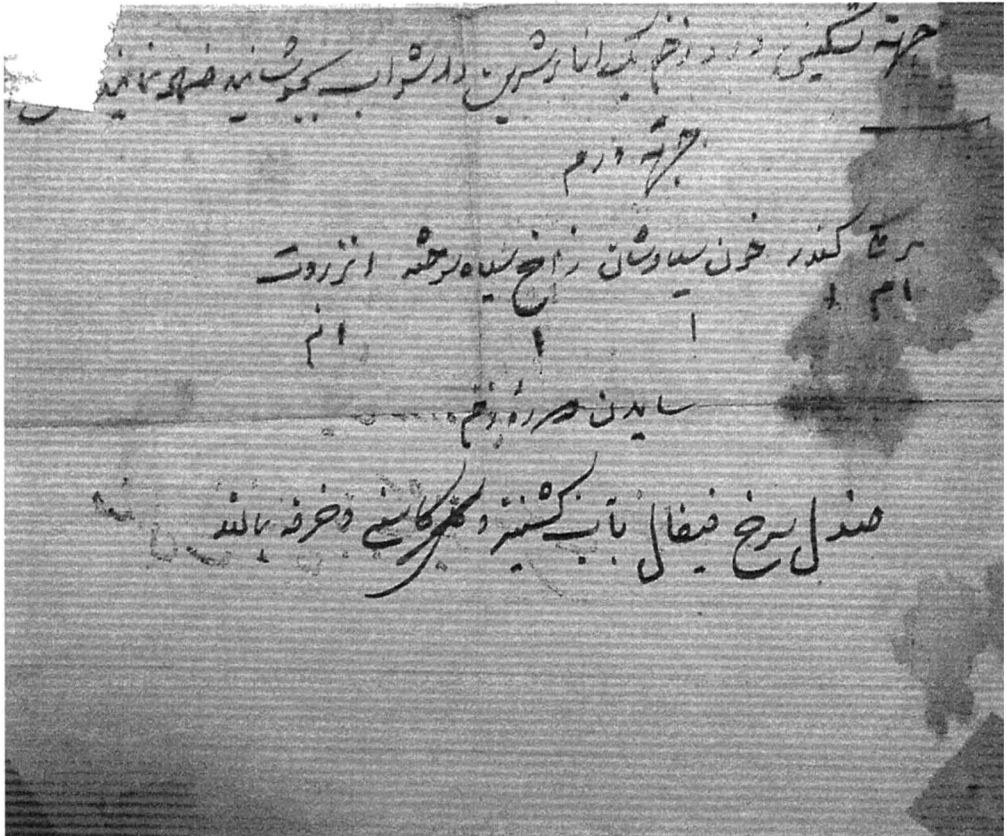 جهة تسکین درد زخم یک انار شیرین را در شراب بجوشانید ضماد نمایند
جهة ورم
کندر خون سیاوشان زاج سیاه سوخته انزروت
ام ا
ا ا انم
ساییدن زخم
صندل سرخ فیفال بآب کشنیز و کاسنی و خرفه بمالند